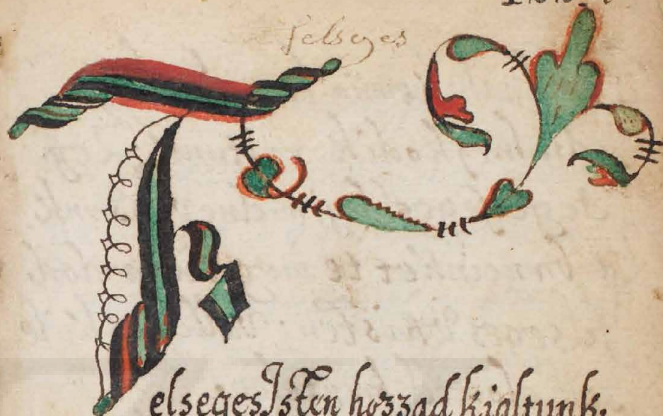 felseges
F
elseges Isten hozzad kialtunk.